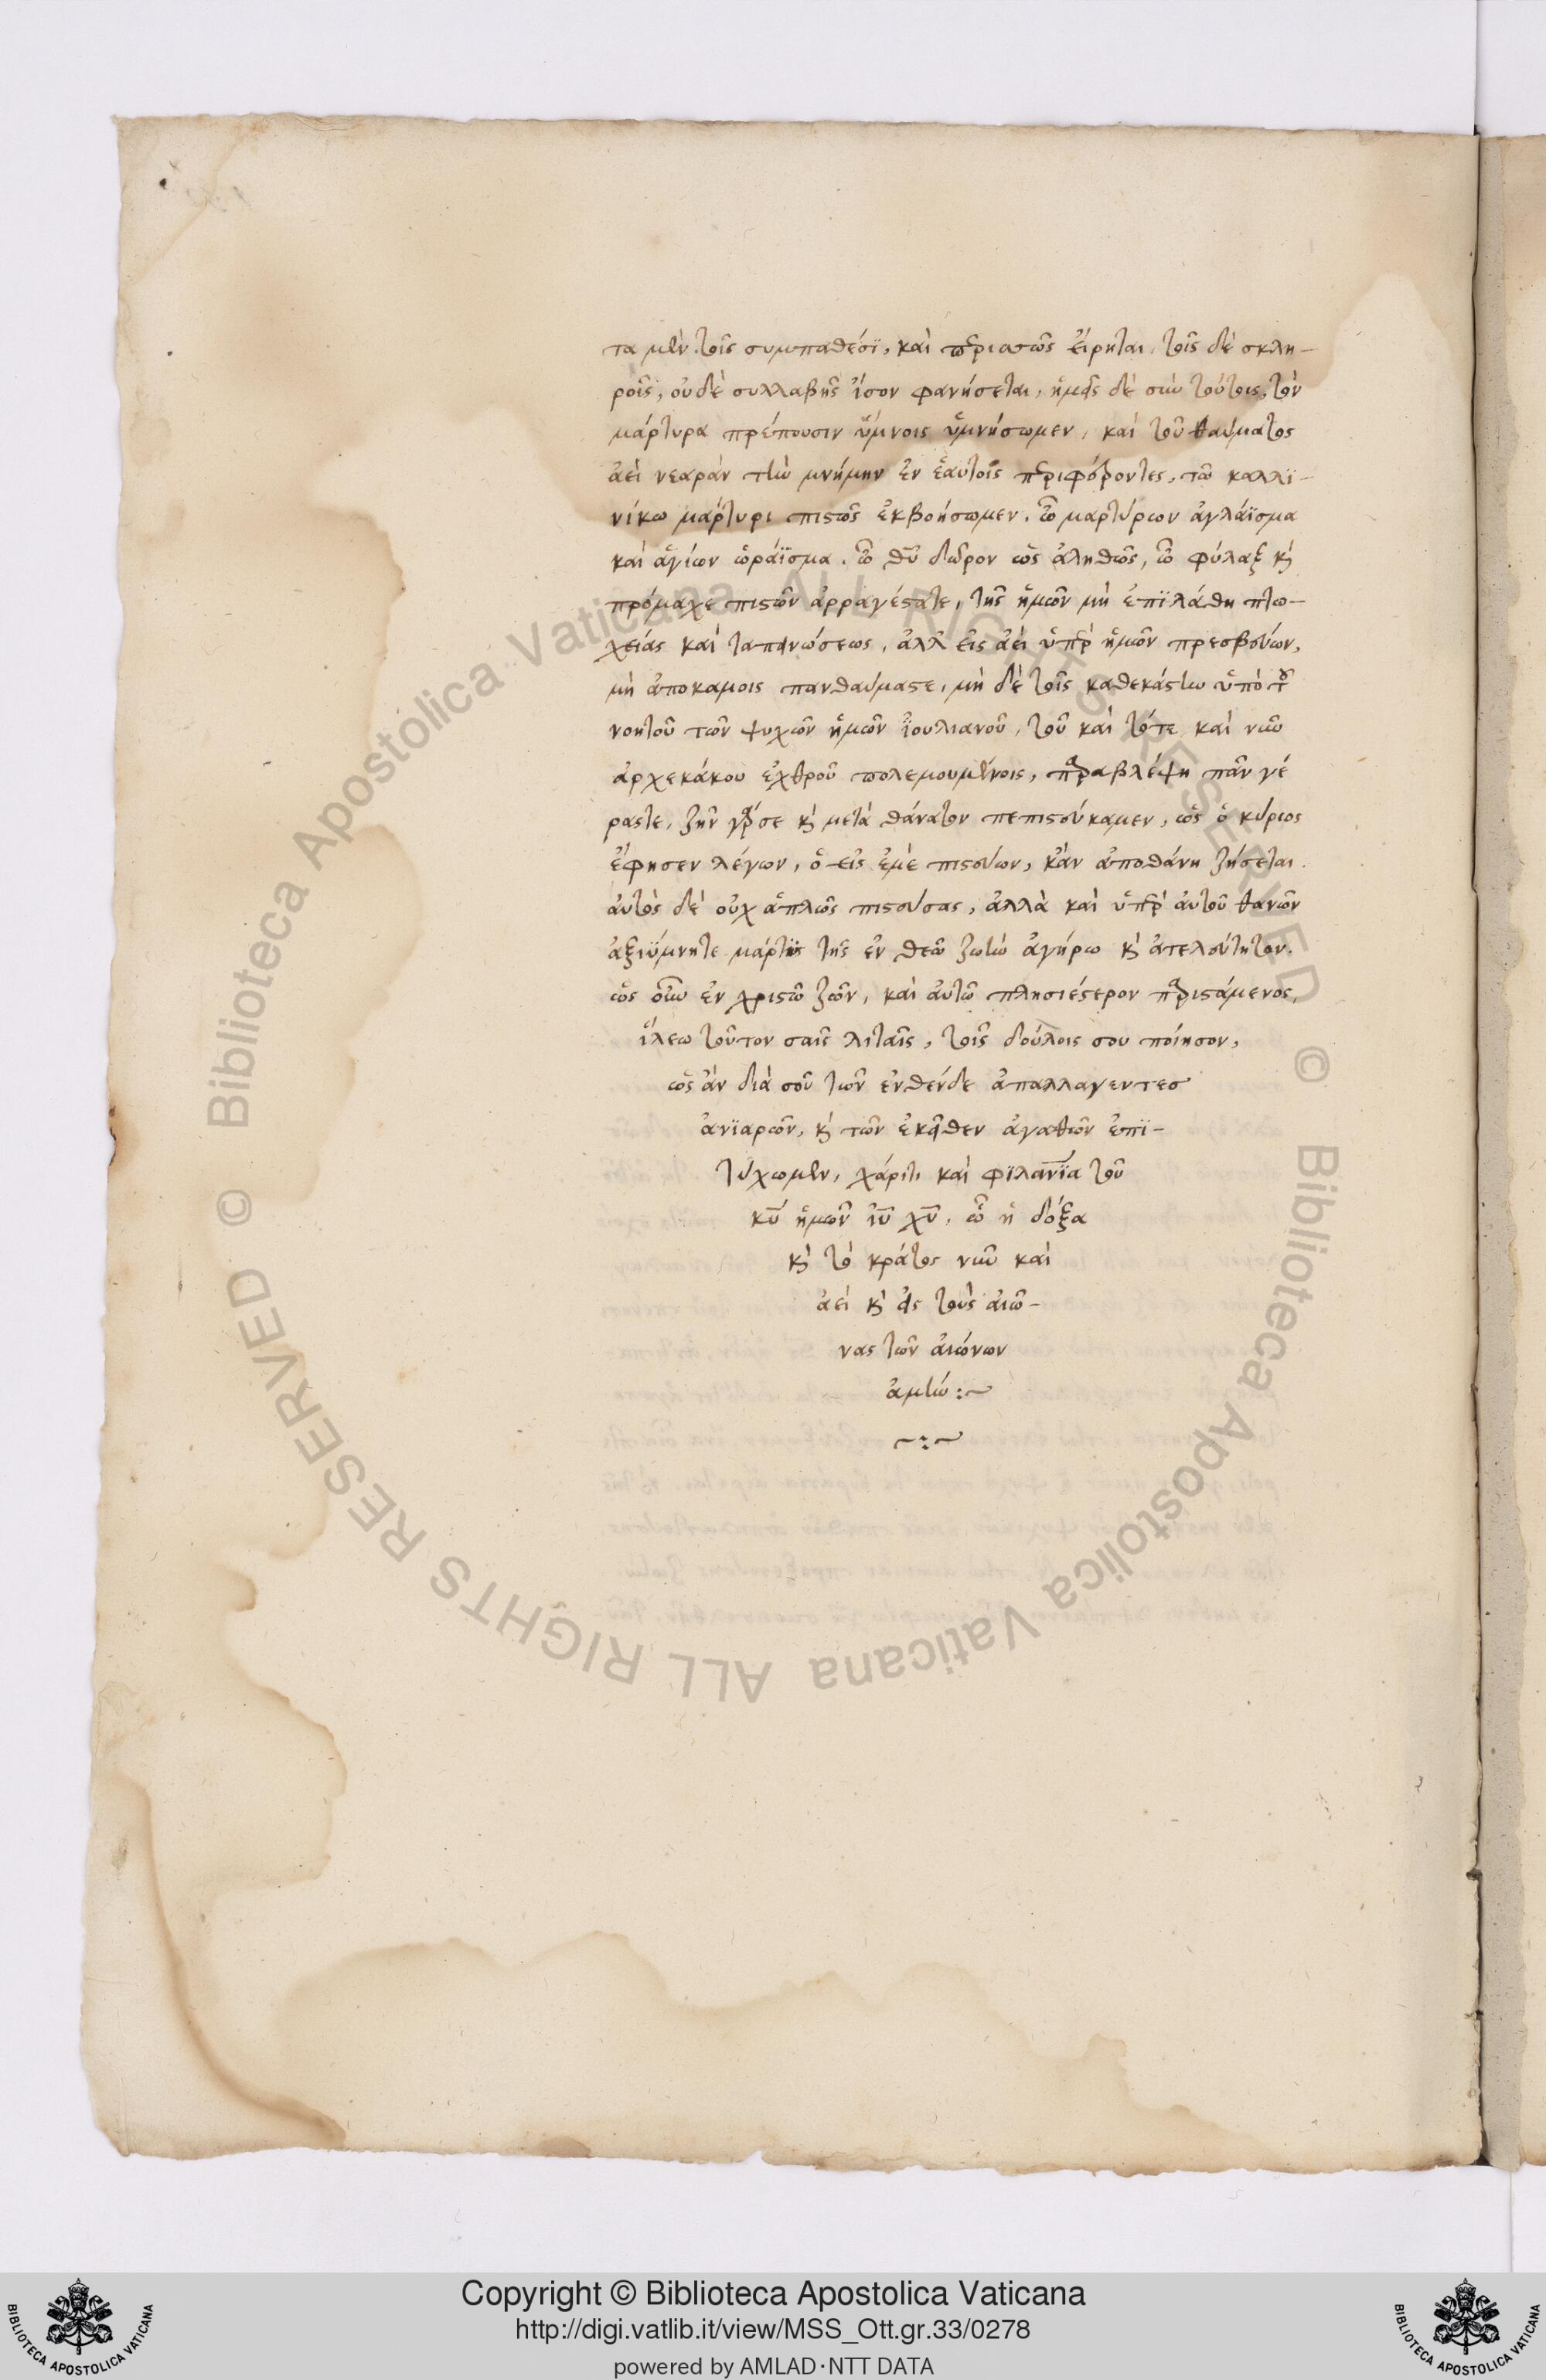 τα μὲν τοῖς συμπαθέσϊ, καὶ περιασῶς εἴρηται, τοῖς δὲ σκλη-
ροῖς, οὐδὲ συλλαβῆς ἴσον φανήσεται, ἡμεῖς δὲ σὺν τούτοις, τὸν
μάρτυρα πρέπουσιν ὕμνοις ὑμνήσωμεν, καὶ τοῦ θαύματος
ἀεὶ νεαρὰν τὴν μνήμην ἐν ἑαυτοῖς περιφέροντες, τῶ καλλϊ-
νίκω μάρτυρι πιστῶς ἐκβοήσωμεν. ὦ μαρτύρων ἀγλάϊσμα
καὶ ἁγίων ὡράϊσμα. ὦ θῦ δῶρον ὡς ἀληθῶς, ὦ φύλαξ κὶ
πρόμαχε πιστῶν ἀρραγέστατε, τῆς ἡμῶν μὴ ἐπϊλάθη πτω-
χείας καὶ ταπεινώσεως, ἀλλ' εἰς ἀεὶ ὑπὲρ ἡμῶν πρεσβεύων,
μὴ ἀποκαμοις πανθαύμαστε, μὴ δὲ τοῖς καθεκάστω ὑπὸ τοῦ
νοητοῦ τῶν ψυχῶν ἡμῶν ἰουλιανοῦ, τοῦ καὶ τότε καὶ νῦν
ἀρχεκάκου ἐχθροῦ πολεμουμένοις, παραβλέψη πᾶν γέ
ραστε, ζῆν γάρ σε κὶ μετὰ θάνατον πεπιστεύκαμεν, ὡς ὁ κύριος
ἔφησεν λέγων, ὁ εἰς ἐμὲ πιστεύων, κἂν ἀποθάνη ζήσεται.
αὐτὸς δὲ οὐχ ἁπλῶς πιστεύσας, ἀλλὰ καὶ ὑπὲρ αὐτοῦ θανὼν
ἀξιΰμνητε μάρτυς τῆς ἐν θεῶ ζωὴν ἀγήρω κὶ ἀτελεύτητον.
ὡς οὖν ἐν χριστῶ ζῶν, καὶ αὐτῶ πλησιέστερον παριστάμενος,
ἵλεω τοῦτον σαῖς λιταῖς, τοῖς δούλοις σου ποίησον,
ὡς ἂν διὰ σοῦ τῶν ἐνθένδε ἀπαλλαγεντες
ἀνϊαρῶν, κὶ τῶν ἐκεῖθεν ἀγαθῶν ἐπϊ-
τύχωμεν, χάριτι καὶ φϊλανϊα τοῦ
κῦ ἡμῶν ἰῦ χῦ, ὧ ἡ δόξα
κὶ τὸ κράτος νῦν καὶ
ἀεὶ κὶ εἰς τοὺς αἰῶ-
νας τῶν αἰώνων
ἀμήν :~
~:~
Copyright © Biblioteca Apostolica Vaticana
http://digi.vatlib.it/view/MSS_Ott.gr.33/0278
powered by AMLAD·NTT DATA
BIBLIOTECA APOSTOLICA VATICANA
BIBLIOTECA APOSTOLICA VATICANA
© Biblioteca Apostolica Vaticana ALL RIGHTS RESERVED © Biblioteca Apostolica Vaticana ALL RIGHTS RESERVED